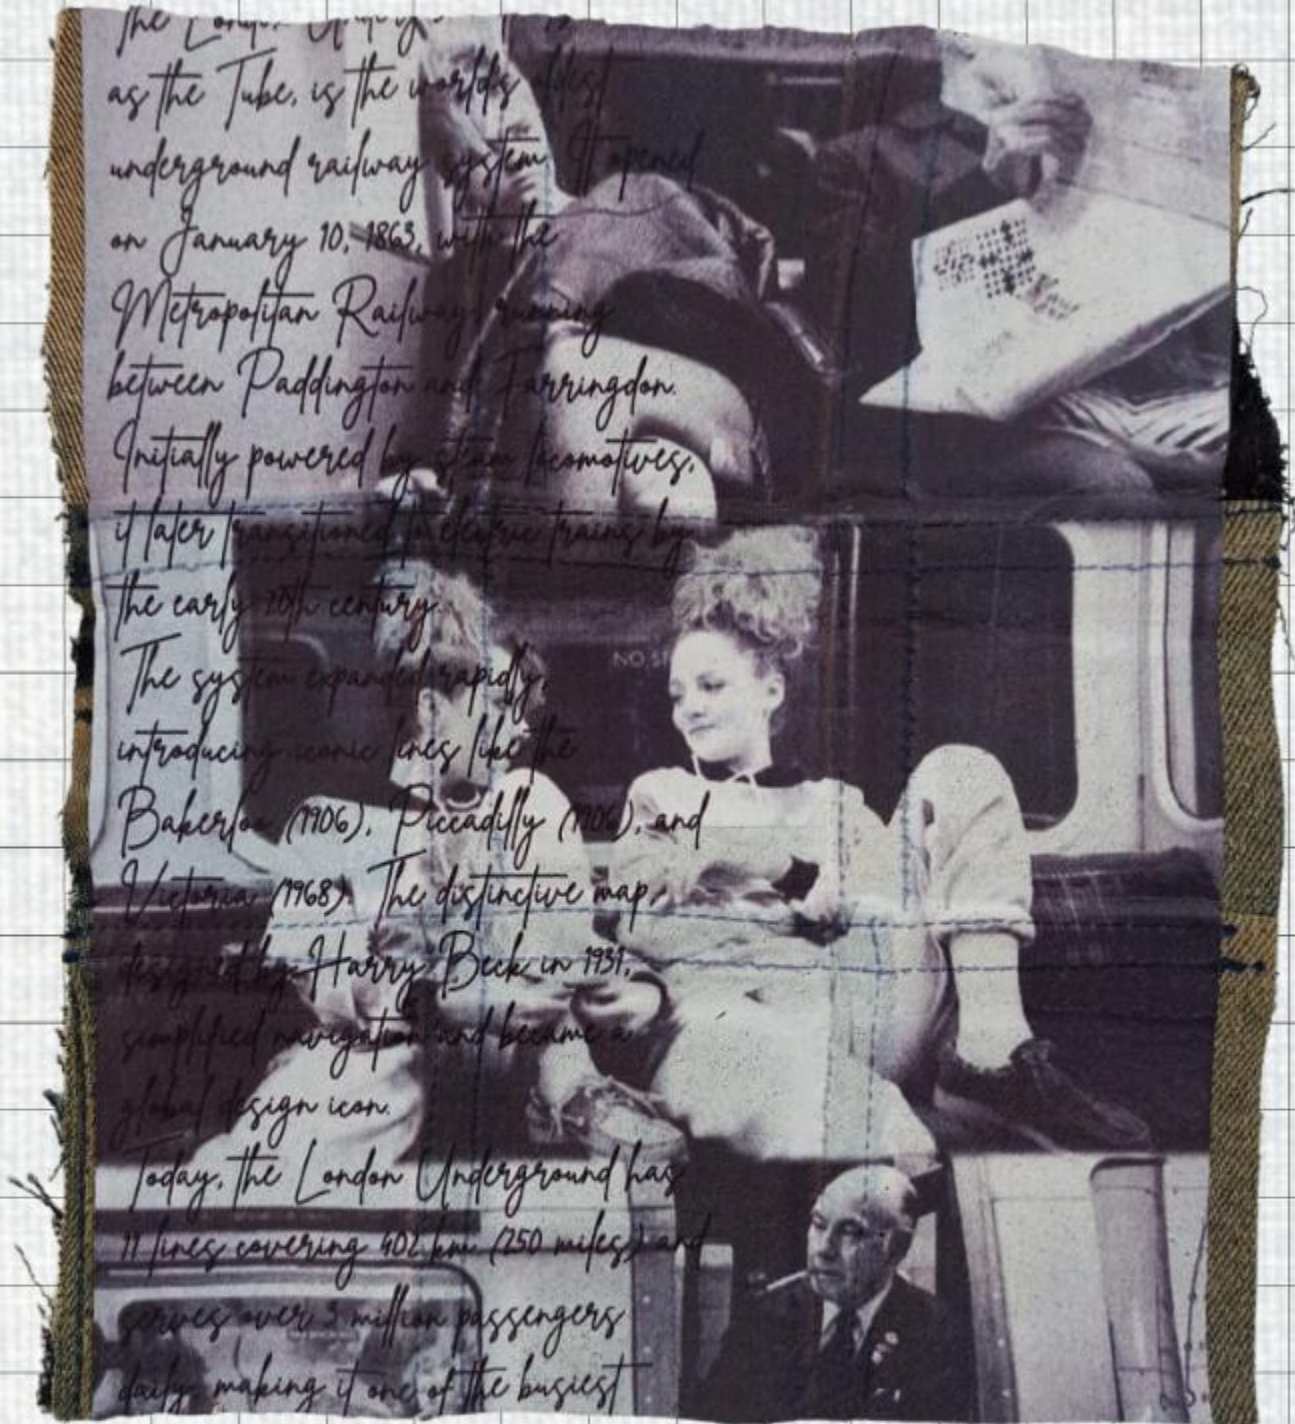 the London
as the Tube, is the world's oldest
underground railway system. It opened
on January 10, 1863, with the
Metropolitan Railway running
between Paddington and Farringdon.
Initially powered by steam locomotives,
it later transitioned to electric trains by
the early 20th century.
The system expanded rapidly,
introducing iconic lines like the
Bakerloo (1906), Piccadilly (1906), and
Victoria (1968). The distinctive map,
designed by Harry Beck in 1931,
simplified navigation and became a
global design icon.
Today, the London Underground has
11 lines covering 402 km (250 miles) and
serves over 3 million passengers
daily, making it one of the busiest
NO